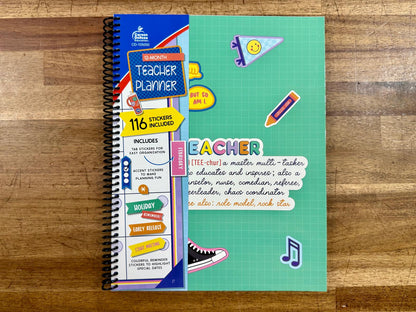 Carson
Dellosa
Education
CD-105050
12-MONTH
TEACHER
PLANNER
116 STICKERS
INCLUDED
INCLUDES
TAB STICKERS FOR
EASY ORGANIZATION
ACCENT STICKERS
TO MAKE
PLANNING FUN
HOLIDAY
REMINDER
EARLY RELEASE
COLORFUL REMINDER
STICKERS TO HIGHLIGHT
SPECIAL DATES
FEBRUARY
BUT SO
AM I
EACHER
[TEE-chur] a master multi-tasker
o educates and inspires; also a
nselor, nurse, comedian, referee,
eerleader, chaos coordinator
ee also: role model, rock star